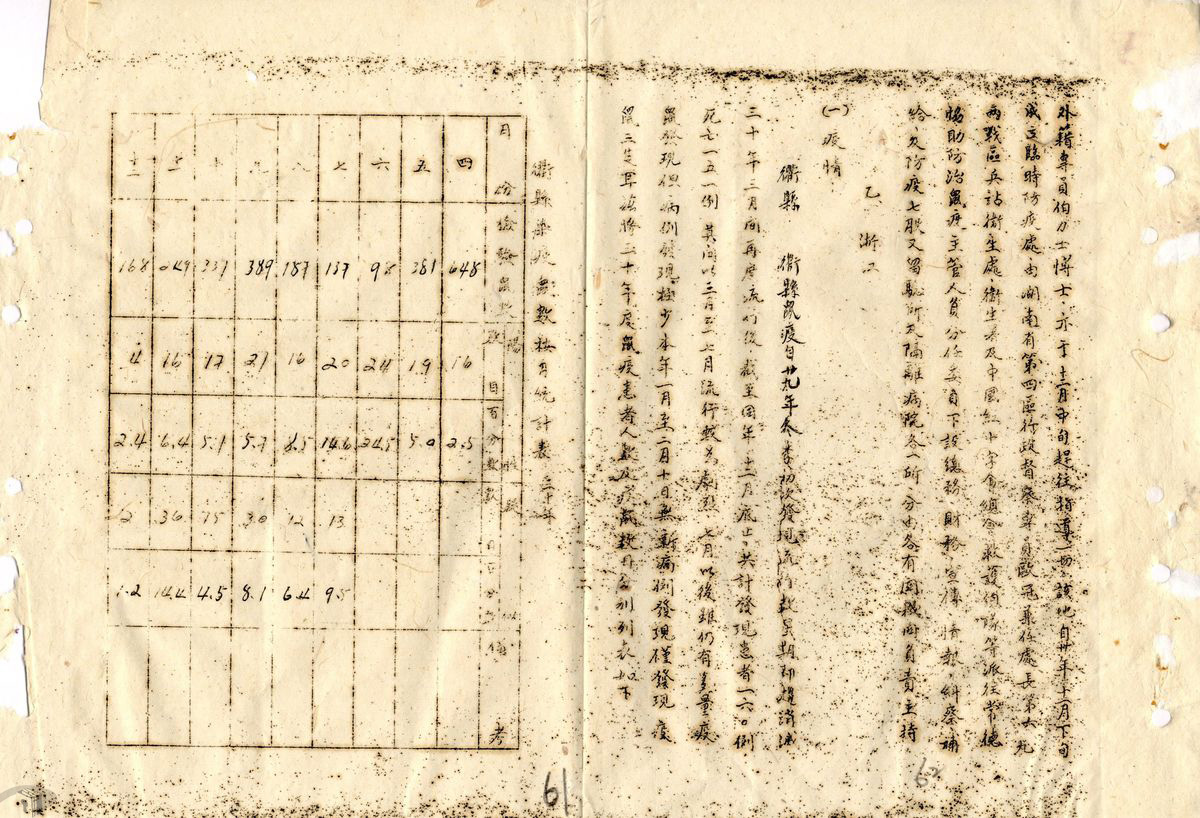 外籍專員伯力士博士，亦于十二月中旬趕往指導一切，該地自卅年十一月下旬
成立臨時防疫處由湖南省第四區行政督察專員歐冠兼任處長第六九
兩戰區兵站衛生處衛生署及中國紅十字會總會救護伯隊等派往常德
協助防治鼠疫主管人員分任委員下設總務財務宣傳情報，糾察補
給，及防疫七股又留驗所及隔離病院各一所分由各有關機関負責主持
乙、浙江
(一)疫情：
衢縣 衢縣鼠疫自廿九年冬季初次發現流行數星期即趨消
三十年三月間再度流行後，截至同年十二月底止，共計發現患者一六〇例
死亡一五一例 其間以三月至七月流行較為劇烈 七月以後雖仍有多量疫
鼠發現但病例發現極少本年一月至二月十日無新病例發現僅發現疫
鼠三隻 將三十年度鼠疫患者人數及疫鼠數 分別列表如下
衢縣染疫鼠數按月統計表 三十年
月份 檢驗鼠數 陽性 數目 百分數 疑似 數目 百分數 備考
四 648 16 2.5
五 381 19 5.0
六 98 24 24.5
七 137 20 14.6 13 9.5
八 187 16 8.5 12 6.4
九 389 21 5.7 30 8.1
十 337 17 5.1 15 4.5
十一 249 16 6.4 36 14.4
十二 168 4 2.4 2 1.2
61
62